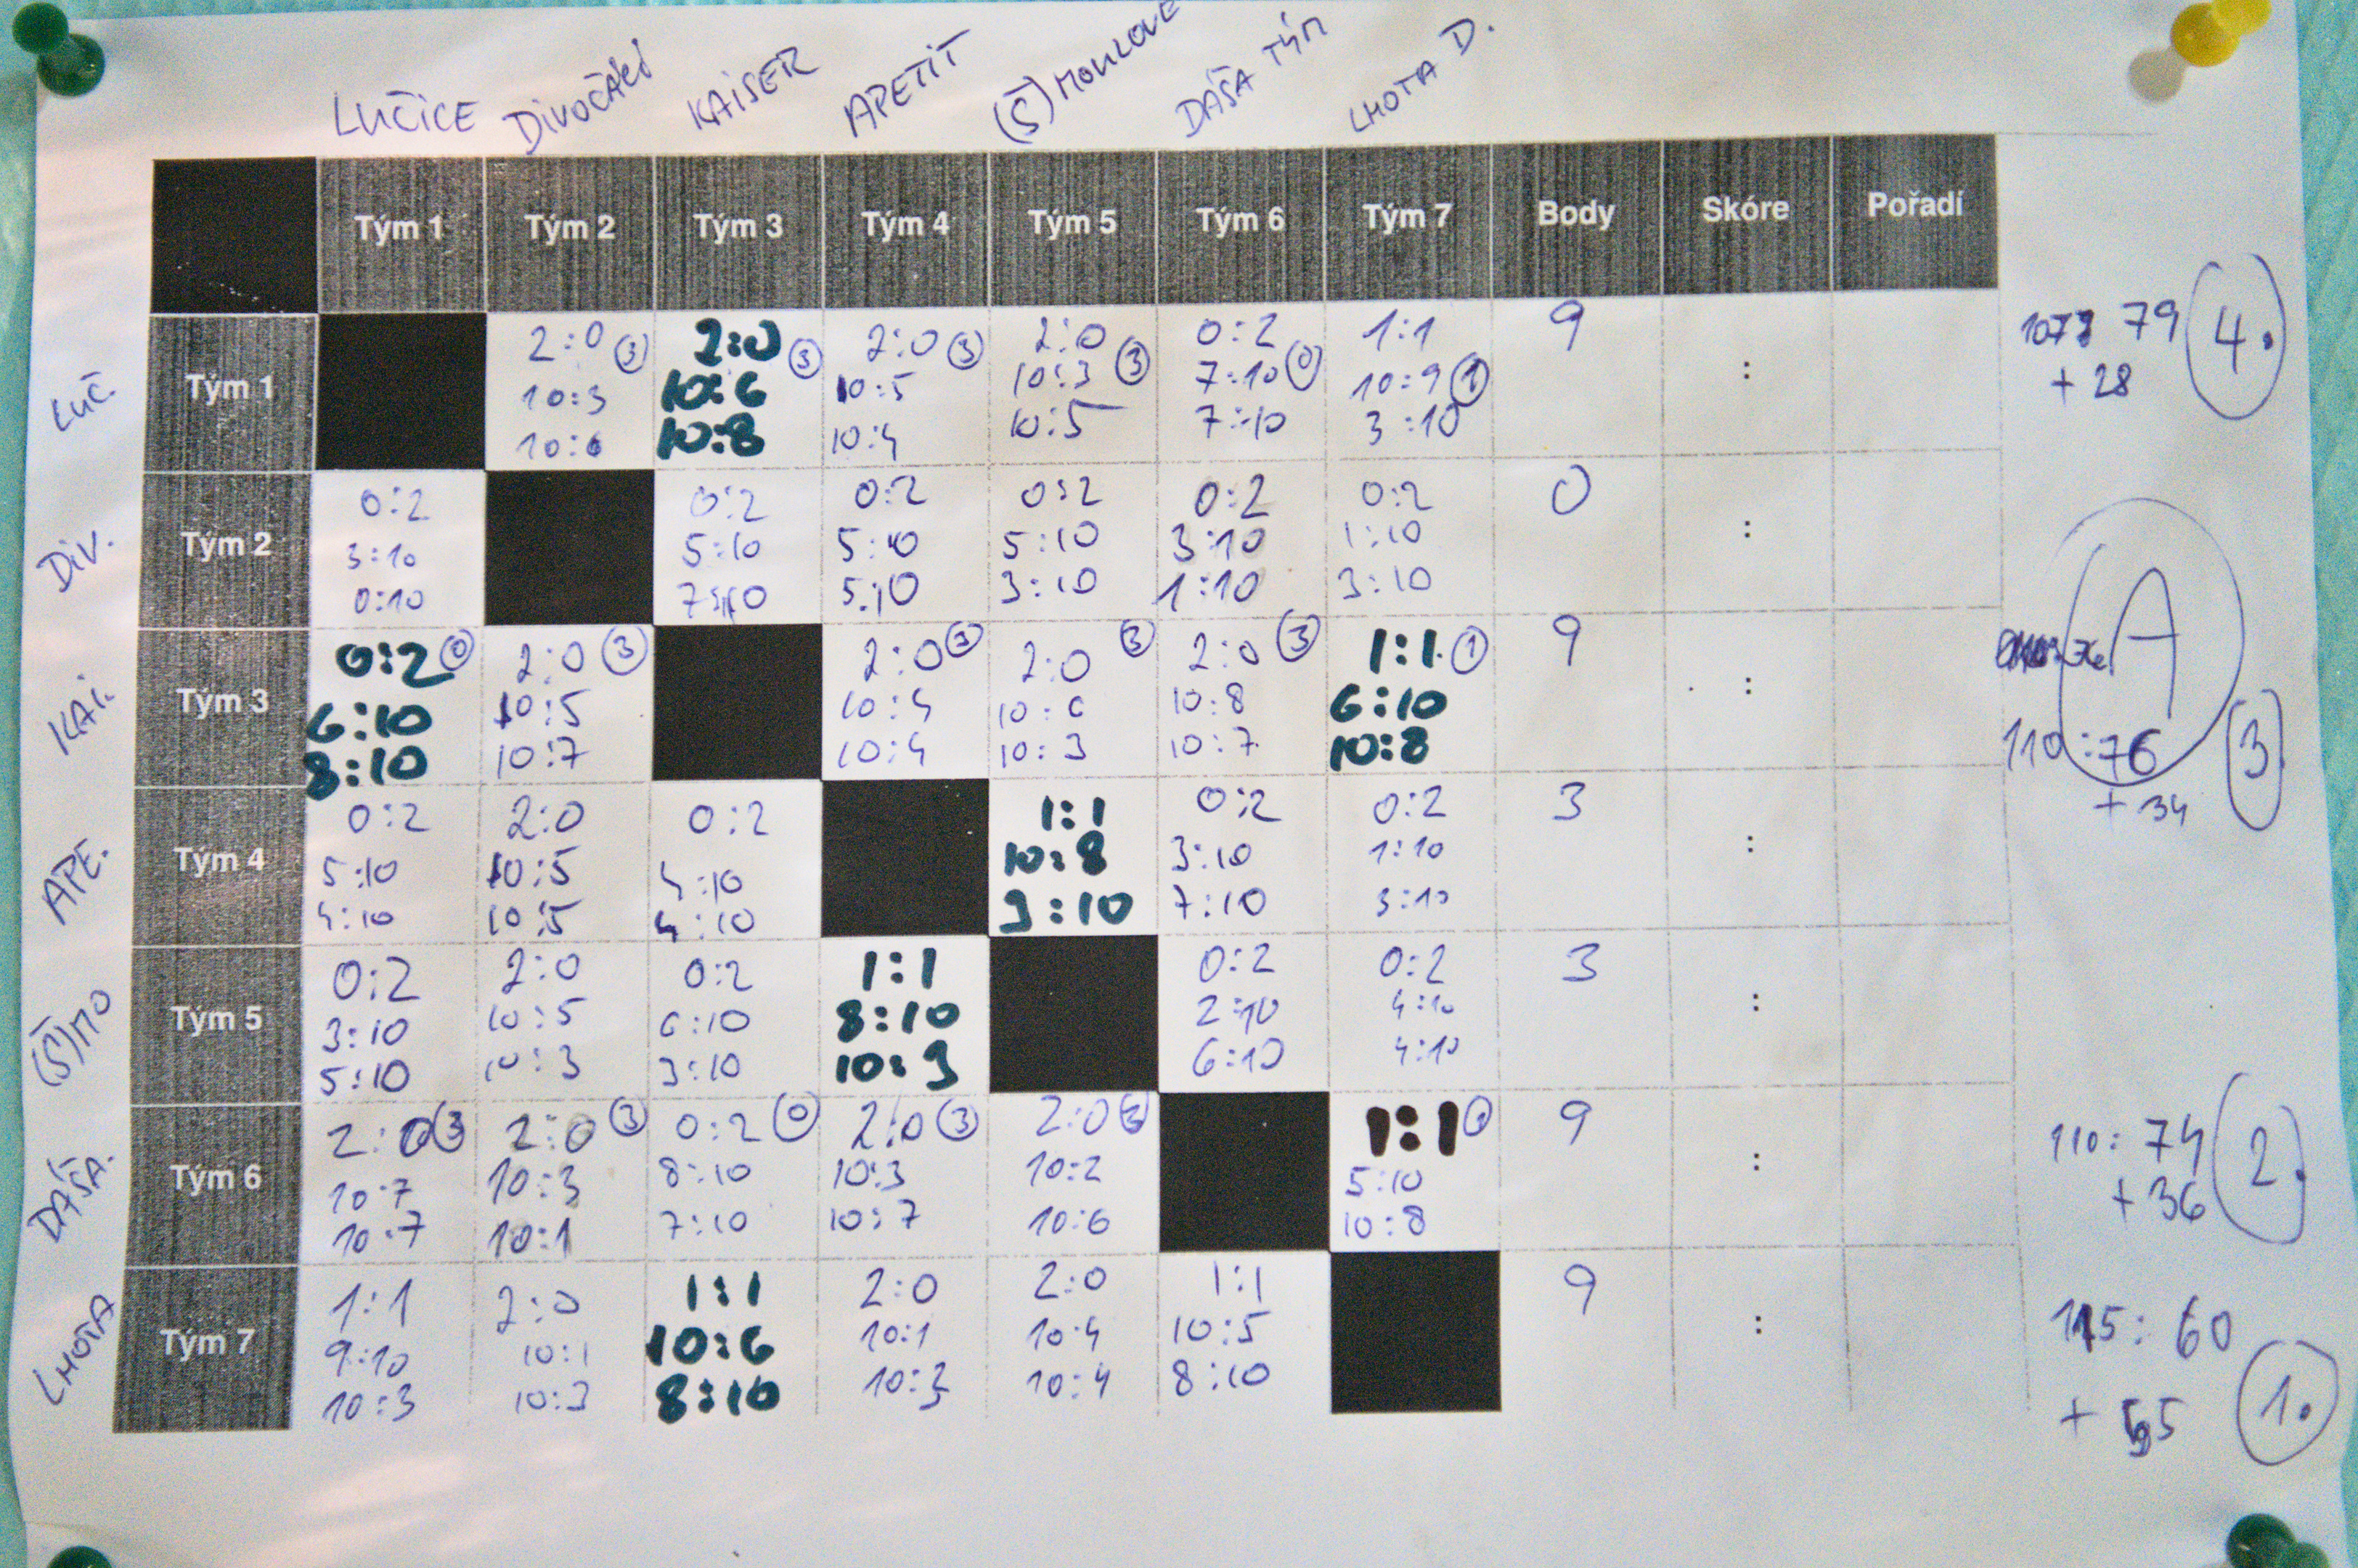 LUČICE DIVOČÁCI KAISER APETIT (Š)MOULOVÉ DÁŠA TÝM LHOTA D.
Tým 1 Tým 2 Tým 3 Tým 4 Tým 5 Tým 6 Tým 7 Body Skóre Pořadí
LUČ. Tým 1 2:0 3 2:0 3 2:0 3 2:0 3 0:2 0 1:1 1 9 : 79 4.
10:3 10:6 10:5 10:3 7:10 10:9
10:6 10:8 10:4 10:5 7:10 3:10 +28
DIV. Tým 2 0:2 0:2 0:2 0:2 0:2 0:2 0 :
3:10 5:10 5:10 5:10 3:10 1:10
0:10 7:10 5:10 3:10 1:10 3:10
A
KAI. Tým 3 0:2 0 2:0 3 2:0 3 2:0 3 2:0 3 1:1 1 9 :
6:10 10:5 10:4 10:6 10:8 6:10
8:10 10:7 10:4 10:3 10:7 10:8 110:76 3.
+34
APE. Tým 4 0:2 2:0 0:2 1:1 0:2 0:2 3 :
5:10 10:5 4:10 10:8 3:10 1:10
4:10 10:5 4:10 9:10 7:10 3:10
(Š)MO Tým 5 0:2 2:0 0:2 1:1 0:2 0:2 3 :
3:10 10:5 6:10 8:10 2:10 4:10
5:10 10:3 3:10 10:9 6:10 4:10
DÁŠA. Tým 6 2:0 3 2:0 3 0:2 0 2:0 3 2:0 3 1:1 9 : 110:74 2.
10:7 10:3 8:10 10:3 10:2 5:10
10:7 10:1 7:10 10:7 10:6 10:8 +36
LHOTA Tým 7 1:1 2:0 1:1 2:0 2:0 1:1 9 : 115:60 1.
9:10 10:1 10:6 10:1 10:4 10:5
10:3 10:3 8:10 10:3 10:4 8:10 +55